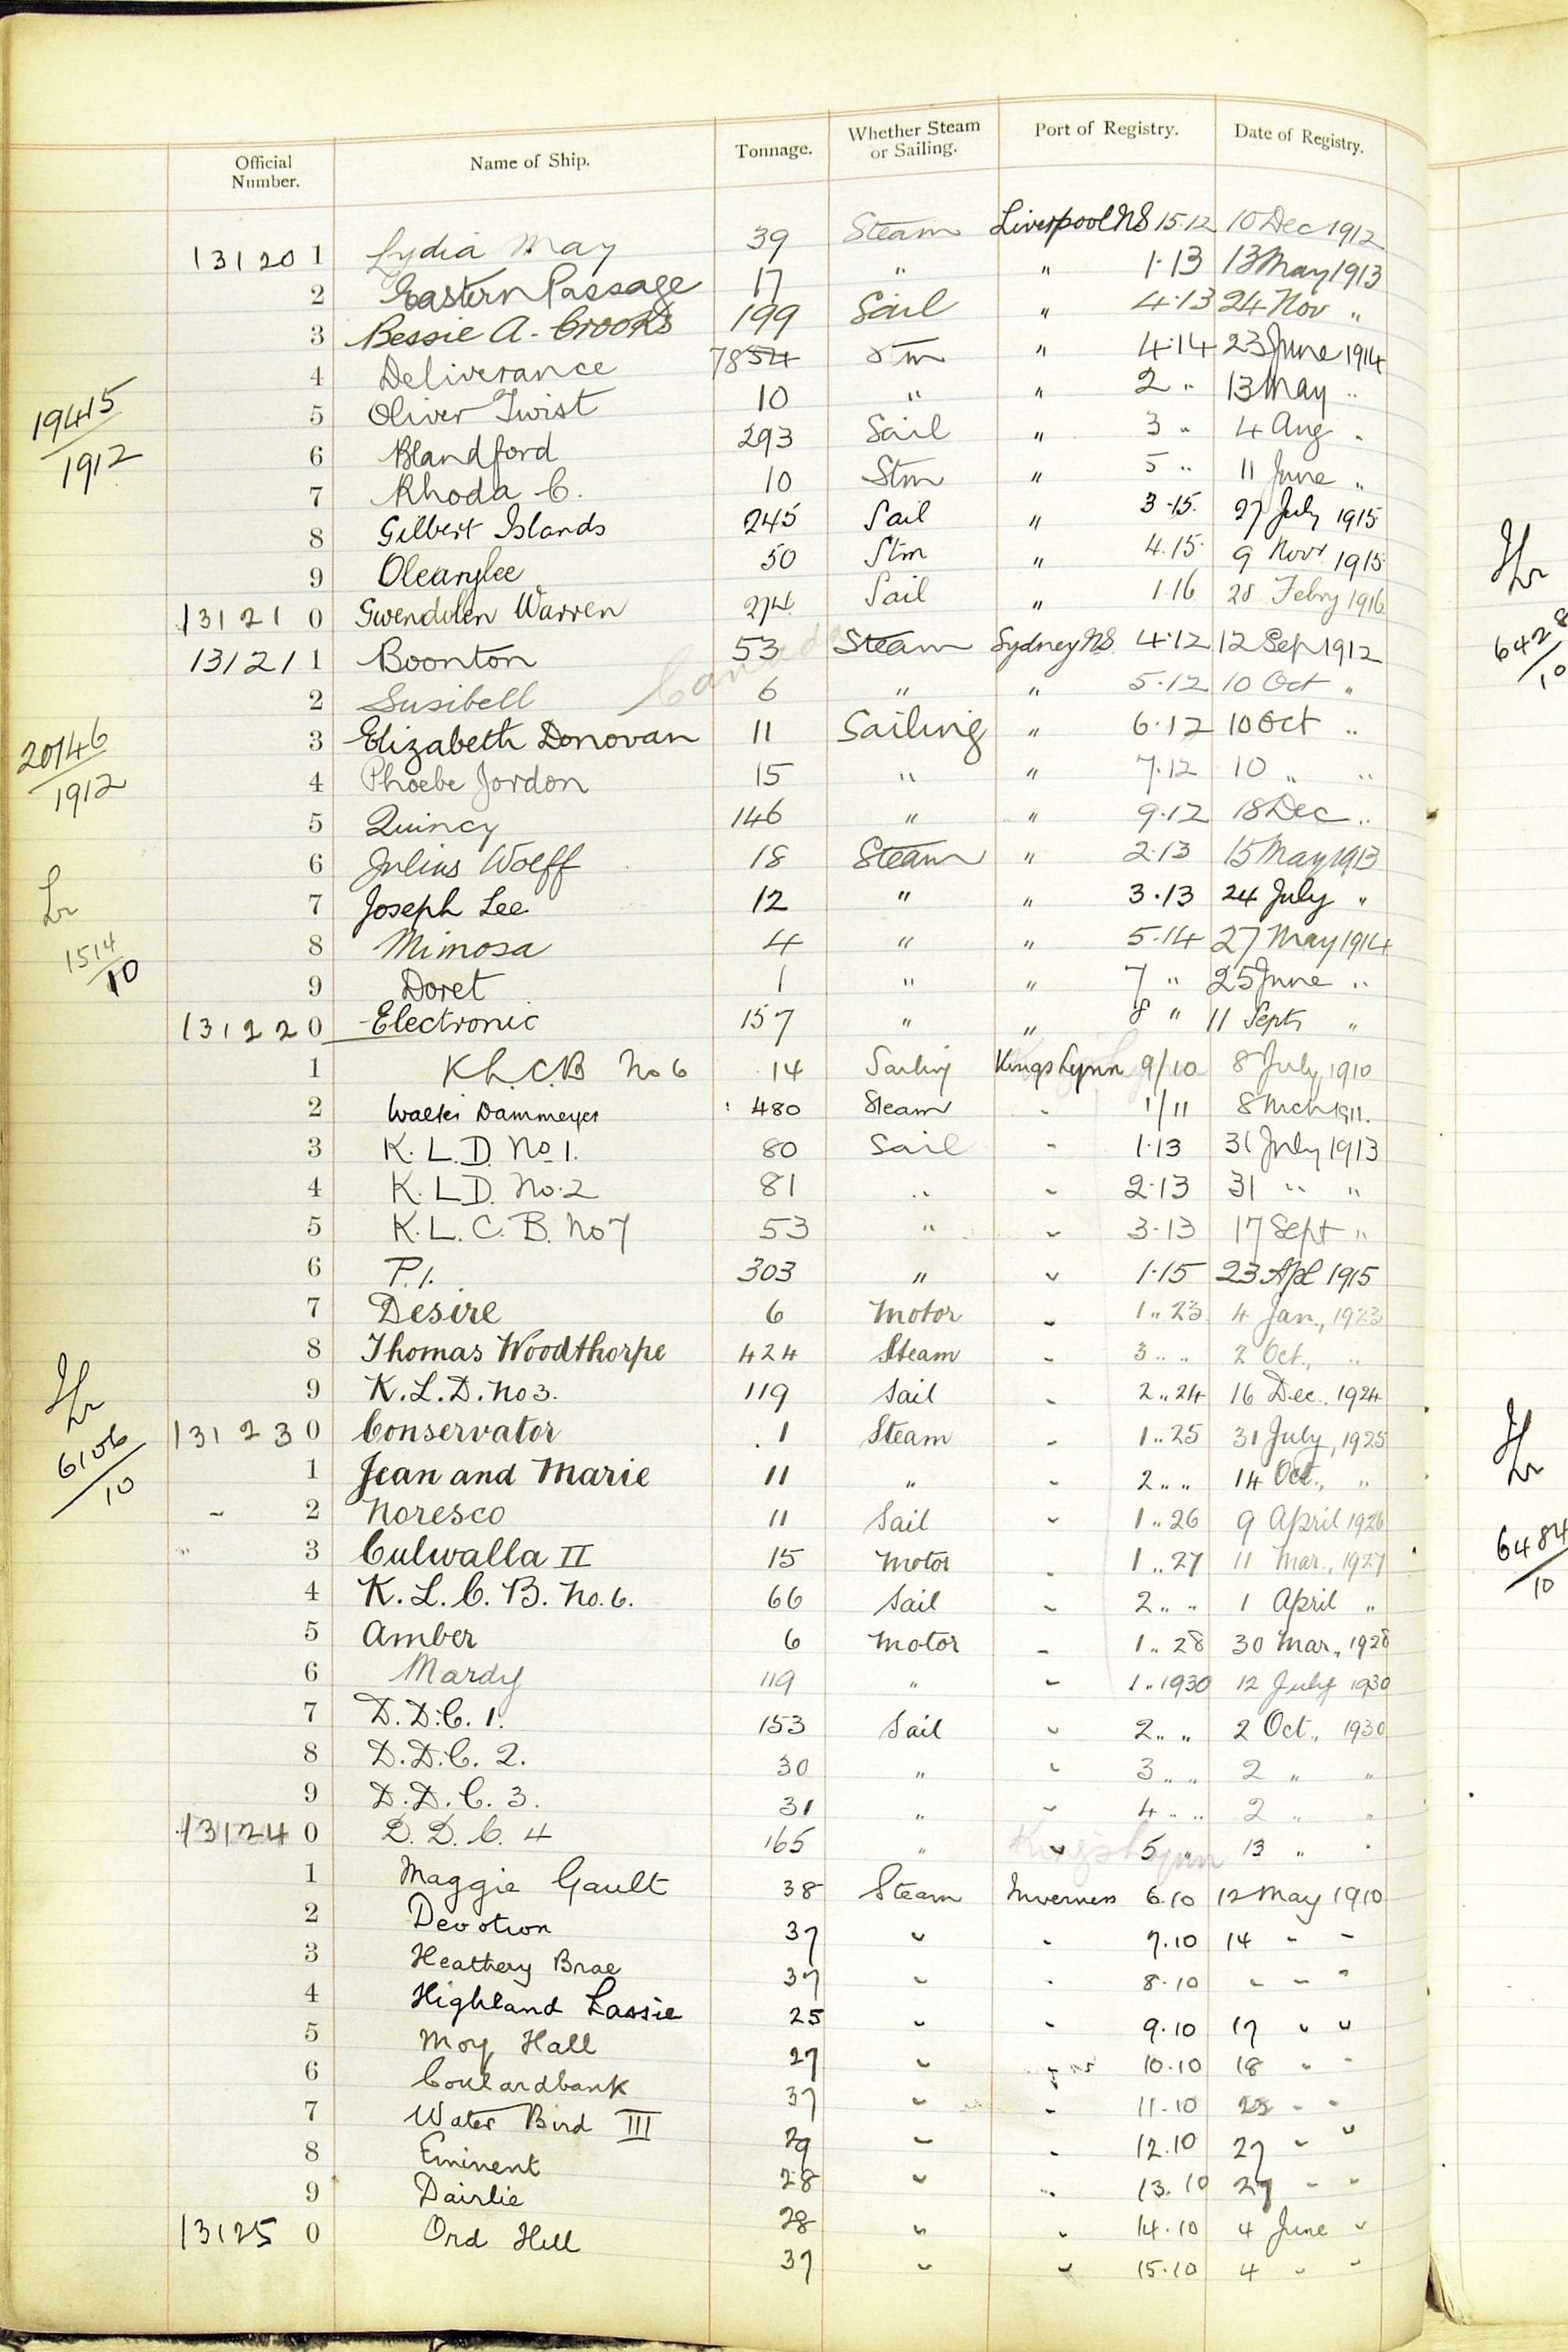 Official Number. Name of Ship. Tonnage. Whether Steam or Sailing. Port of Registry. Date of Registry.
131201 Lydia May 39 Steam Liverpool NS 15.12 10 Dec 1912
2 Eastern Passage 17 " " 1.13 13 May 1913
3 Bessie A. Crooks 199 Sail " 4.13 24 Nov "
4 Deliverance 78 54 Stm " 4.14 23 June 1914
19415/1912
5 Oliver Twist 10 " " 2 " 13 May "
6 Blandford 293 Sail " 3 " 4 Aug "
7 Rhoda C. 10 Stm " 5 " 11 June "
8 Gilbert Islands 245 Sail " 3.15. 27 July 1915
9 Olearylee 50 Stm " 4.15. 9 Novr 1915
131210 Gwendolen Warren 274 Sail " 1.16 28 Febry 1916
131211 Boonton 53 Steam Sydney NS. 4.12 12 Sep 1912
Canada
2 Susibell 6 " " 5.12 10 Oct "
3 Elizabeth Donovan 11 Sailing " 6.12 10 Oct "
20146/1912
4 Phoebe Jordon 15 " " 7.12 10 " "
5 Quincy 146 " " 9.12 18 Dec "
6 Julius Wolff 18 Steam " 2.13 15 May 1913
7 Joseph Lee 12 " " 3.13 24 July "
1514/10
8 Mimosa 4 " " 5.14 27 May 1914
9 Doret 1 " " 7 " 25 June "
131220 Electronic 157 " " 8 " 11 Sept "
1 K L. C. B No 6 14 Sailing Kings Lynn 9/10 8 July 1910
2 Walter Dammeyer 480 Steam " 1/11 8 Mch 1911.
3 K. L. D. No 1. 80 Sail " 1.13 31 July 1913
4 K. L D. No. 2 81 " " 2.13 31 " "
5 K. L. C. B. No 7 53 " " 3.13 17 Sept "
6 P. 1. 303 " " 1.15 23 Apl 1915
7 Desire 6 Motor " 1 " 23. 4 Jan., 1923
8 Thomas Woodthorpe 424 Steam " 3 " " 2 Oct., "
9 K. L. D. No 3. 119 Sail " 2 " 24 16 Dec., 1924
131230 Conservator 1 Steam " 1 " 25 31 July, 1925
6106/10
1 Jean and Marie 11 " " 2 " " 14 Oct., "
2 Noresco 11 Sail " 1 " 26 9 April 1926
3 Culwalla II 15 Motor " 1 " 27 11 Mar., 1927
4 K. L. C. B. No. 6. 66 Sail " 2 " " 1 April "
5 Amber 6 Motor " 1 " 28 30 Mar., 1928
6 Mardy 119 " " 1 " 1930 12 July 1930
7 D. D. C. 1. 153 Sail " 2 " " 2 Oct., 1930
8 D. D. C. 2. 30 " " 3 " " 2 " "
9 D. D. C. 3. 31 " " 4 " " 2 " "
131240 D. D. C. 4 165 " Kings Lynn " 5 " 13 " "
1 Maggie Gault 38 Steam Inverness 6.10 12 May 1910
2 Devotion 37 " " 7.10 14 " "
3 Heathery Brae 37 " " 8.10 " " "
4 Highland Lassie 25 " " 9.10 17 " "
5 Moy Hall 27 " " 10.10 18 " "
6 Coulardbank 37 " " 11.10 " "
7 Water Bird III 29 " " 12.10 27 " "
8 Eminent 28 " " 13.10 27 " "
9 Dairlie 28 " " 14.10 4 June "
131250 Ord Hill 37 " " 15.10 4 " "
6428/10
6484/10